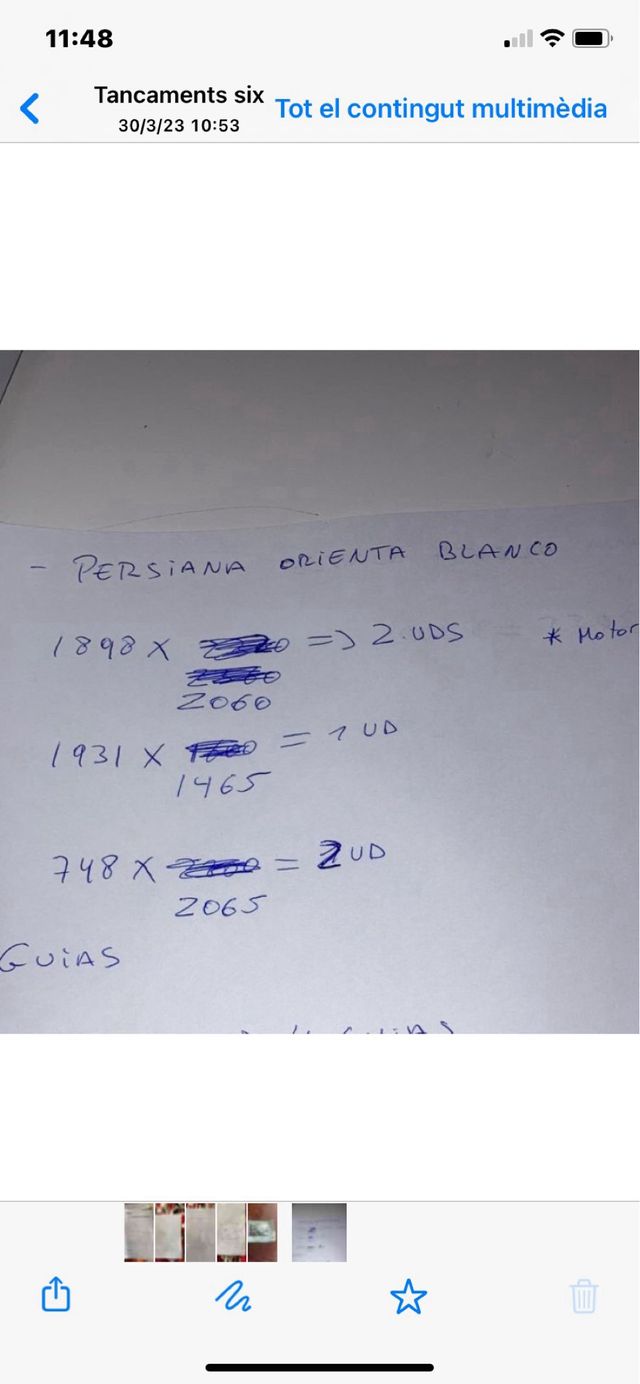 11:48
Tancaments six
30/3/23 10:53
Tot el contingut multimèdia
- PERSiANA ORIENTA BLANCO
1898 X => 2.UDS * Motor
2060
1931 X = 1 UD
1465
748 X = 2 UD
2065
GUiAS